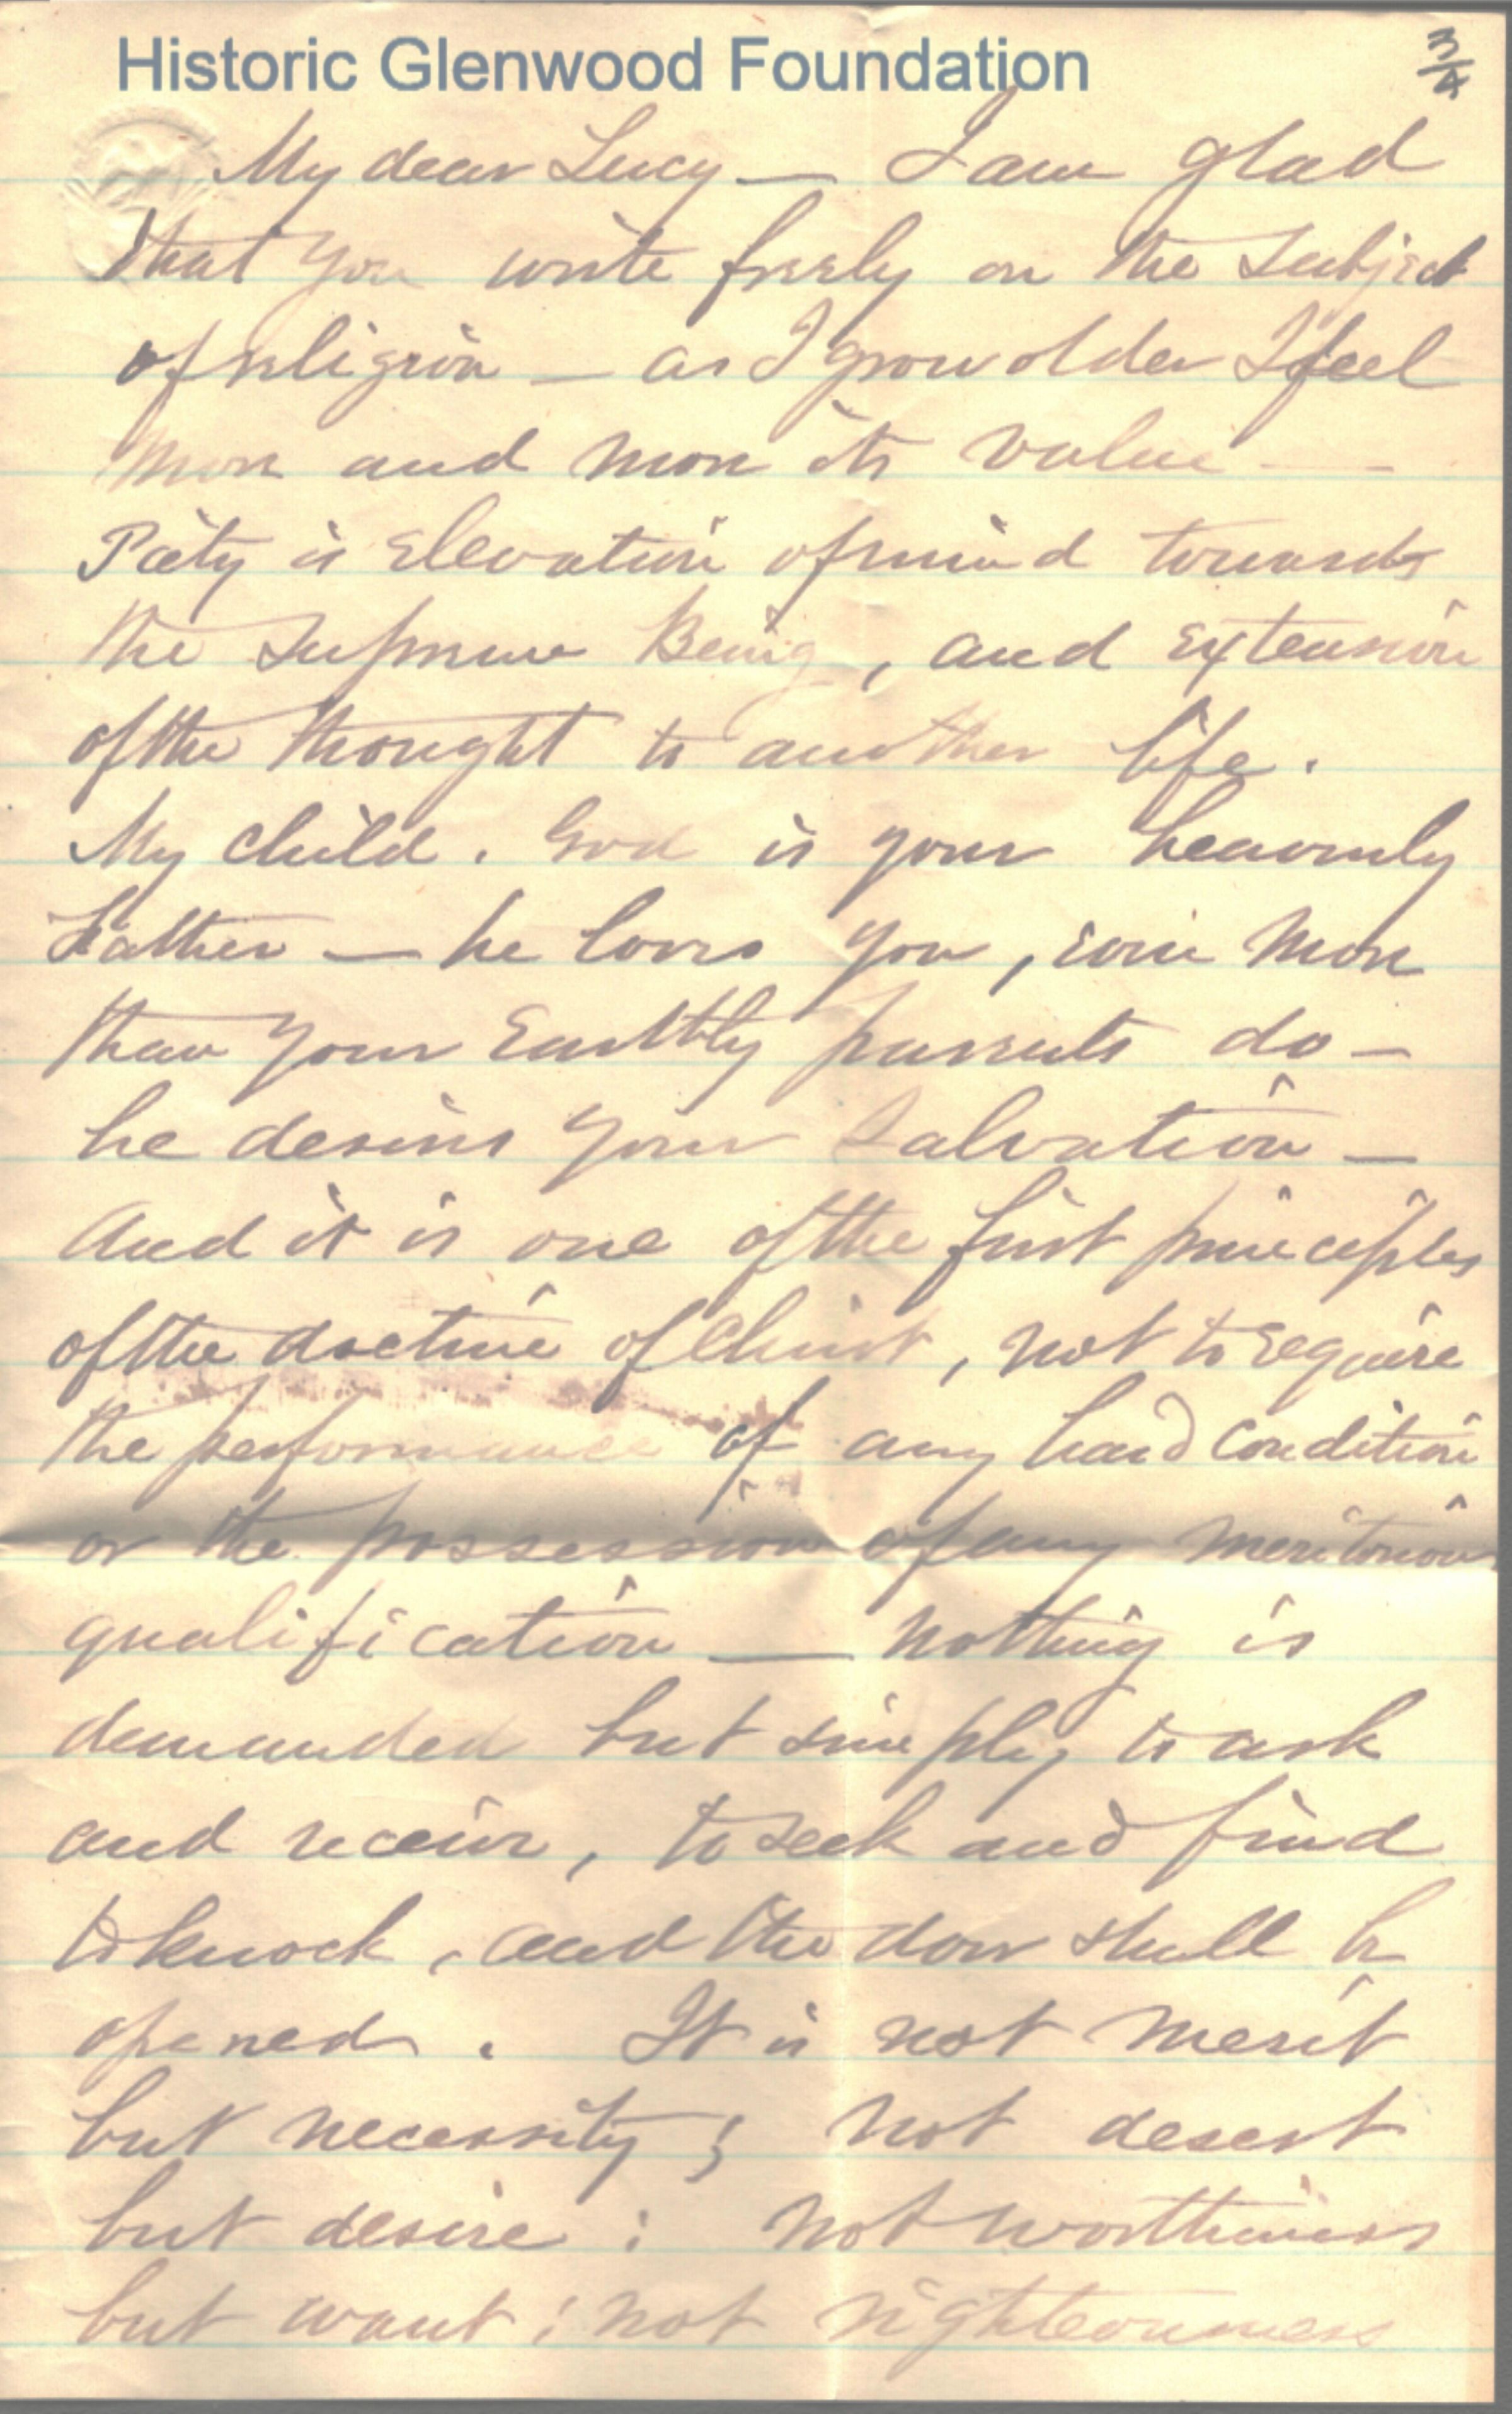 Historic Glenwood Foundation
3/4
My dear Lucy — I am glad
that you write freely on the subject
of religion — as I grow older I feel
more and more its value —
Piety is Elevation of mind towards
the Supreme Being, and extension
of the thought to another life.
My child. God is your heavenly
Father — he loves you, even more
than your Earthly parents do —
he desires your Salvation —
And it is one of the first principles
of the doctrine of Christ, not to require
the performance of any hard condition
or the possession of any meritorious
qualification — nothing is
demanded but simply to ask
and receive, to seek and find
to knock, and the door shall be
opened. It is not merit
but necessity; not desert
but desire; not worthiness
but want; not righteousness